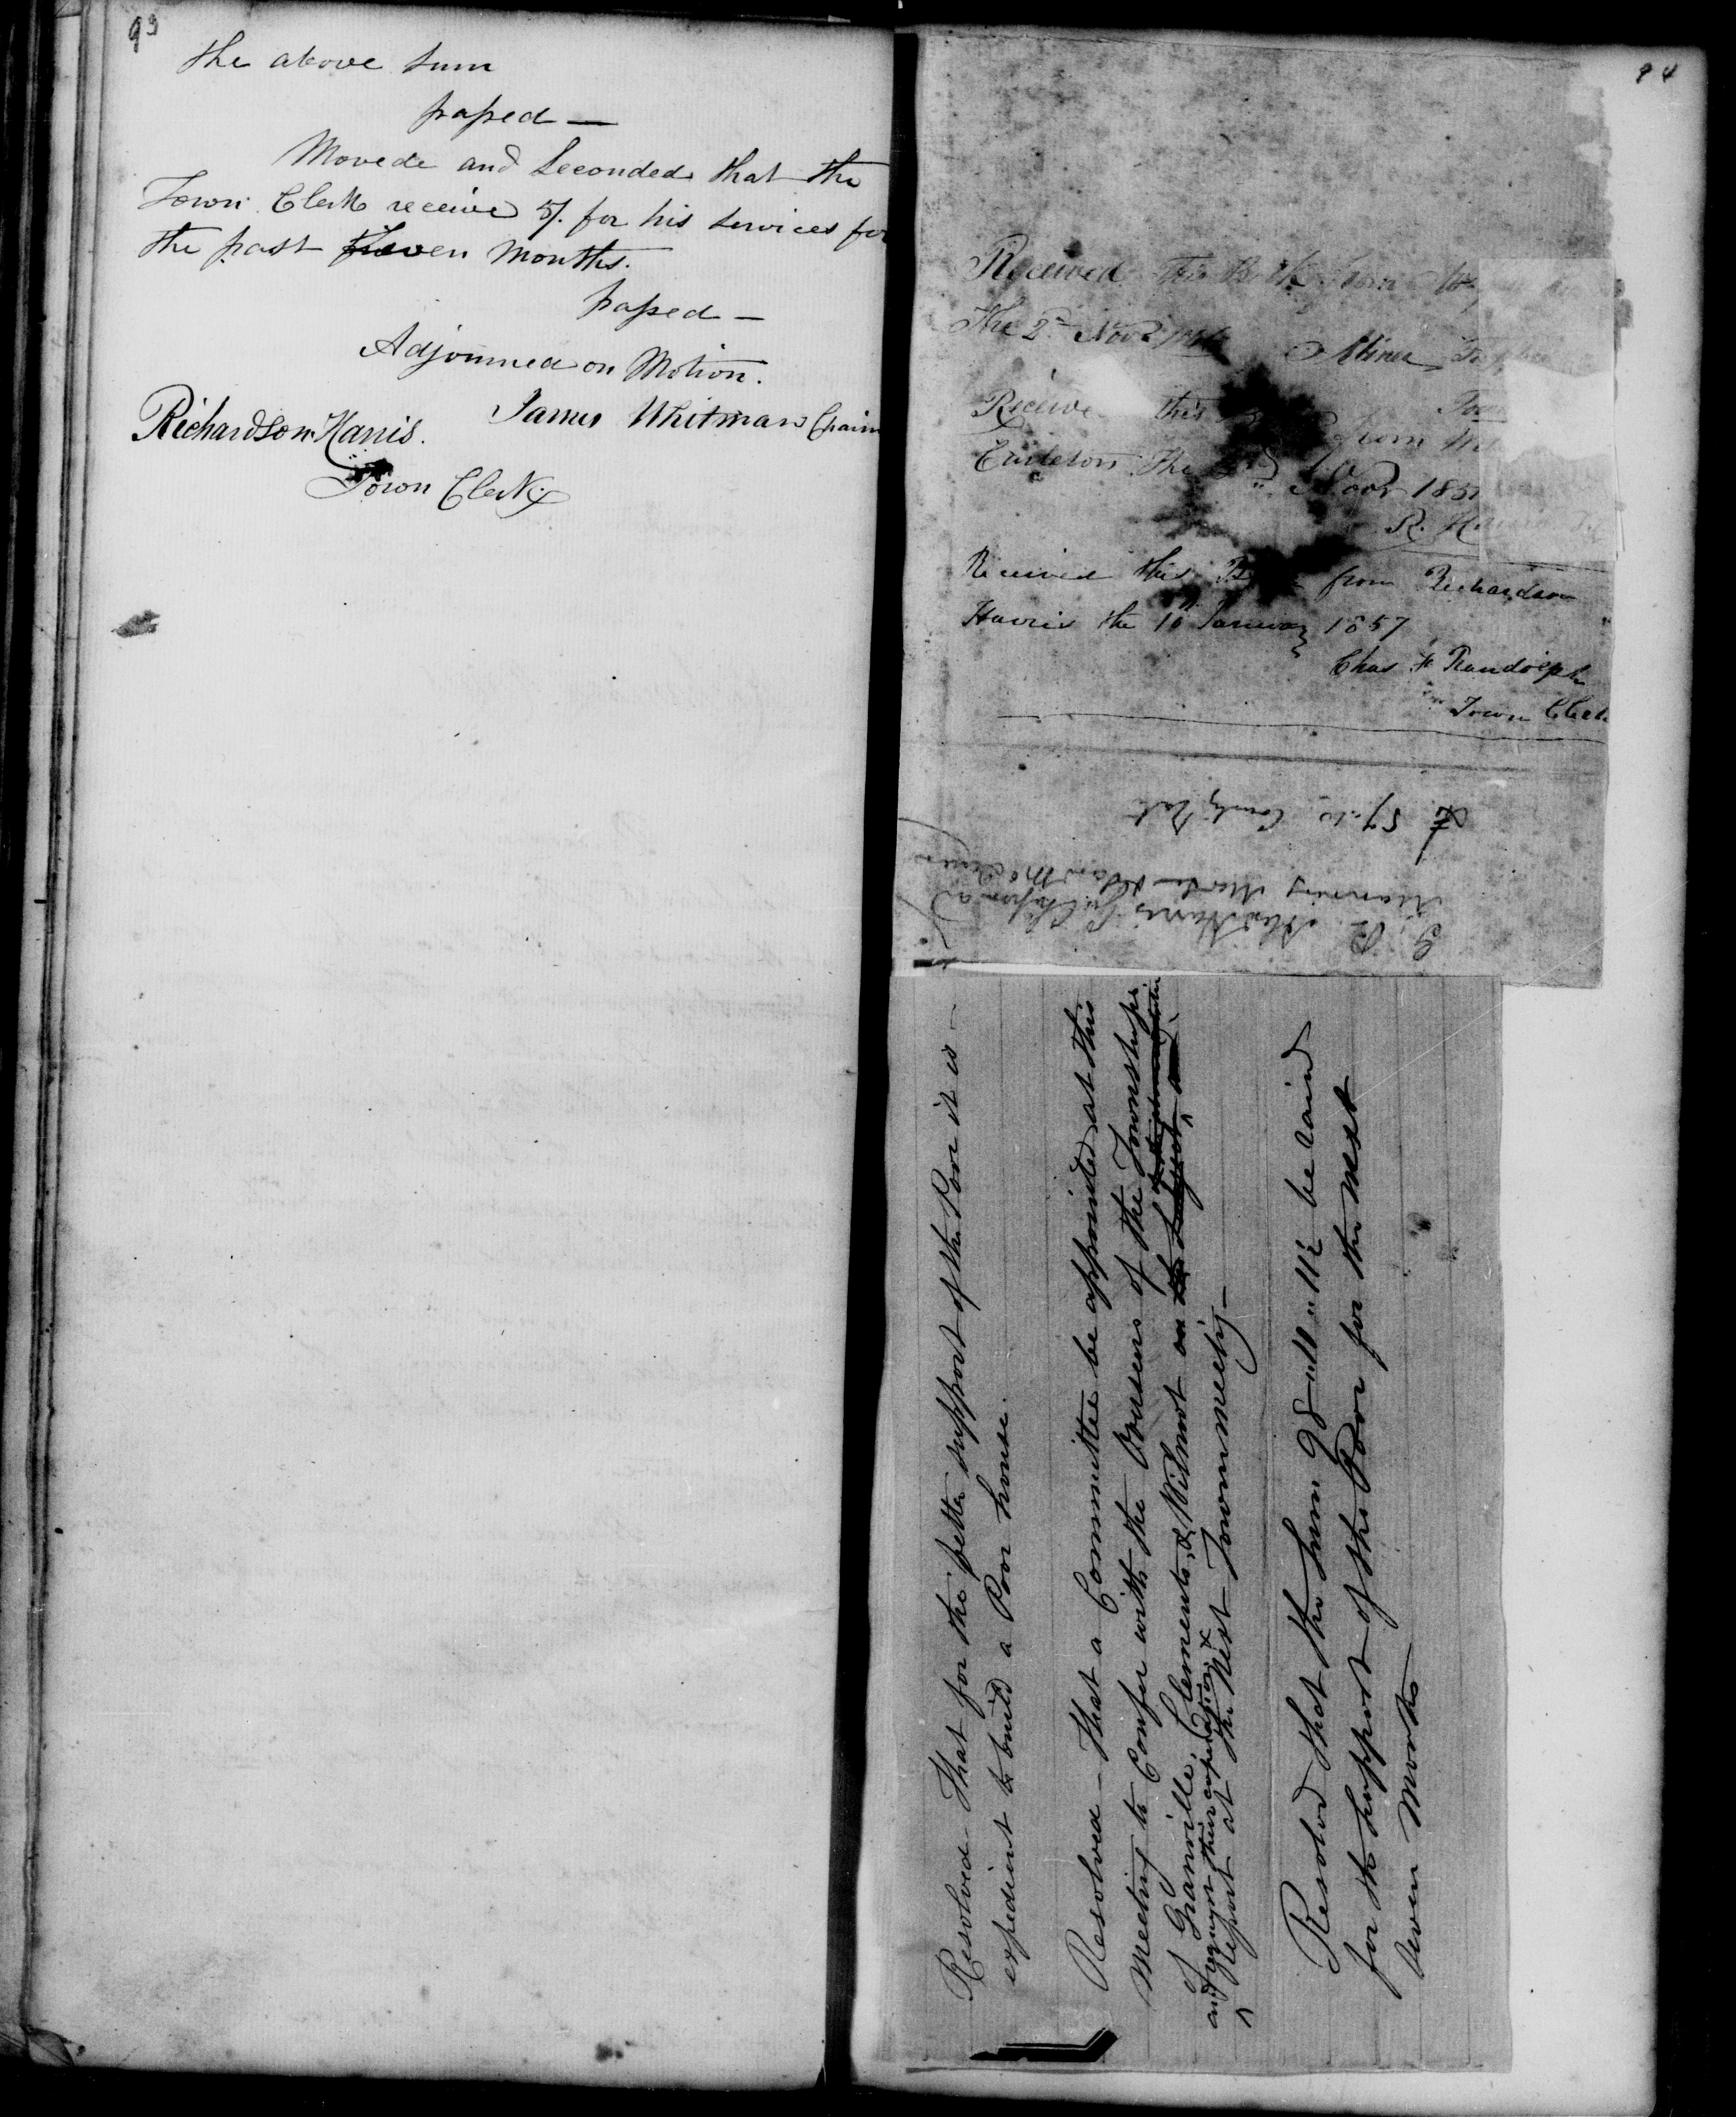 93
the above sum
passed —
Movede and Seconded that the
Town Clerk receive 5/. for his services for
the past seven Months.
passed —
Adjourned on Motion.
Richardson Harris. James Whitman Chairm
Town Clerk
94
Received this Book from
The 2d Novr Abner
Receive this from
The Novr 1851
R. Harris
Received this from Richardson
Harris the 10 January 1857
Chas F Randolph
Town Clerk
£ 57.10 County Rate
Manning
Resolved – That for the better support of the Poor it is –
expedient to build a Poor house.
Resolved – That a Committee be appointed at this
Meeting to Confer with the Overseers of the Townships
of Granville, Clements, & Wilmot on the Subject and
and require their cooperation &
Report at the Next Town meeting –
Resolved that the Sum 98 „ 11 „ 11½ be raised
for the Support of the Poor for the next
seven Months